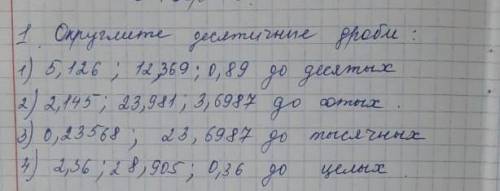 1. Округлите десятичные дроби:
1) 5,126; 12,369; 0,89 до десятых
2) 2,145; 23,981; 3,6987 до сотых.
3) 0,23568; 23,6987 до тысячных
4) 2,36; 28,905; 0,36 до целых.